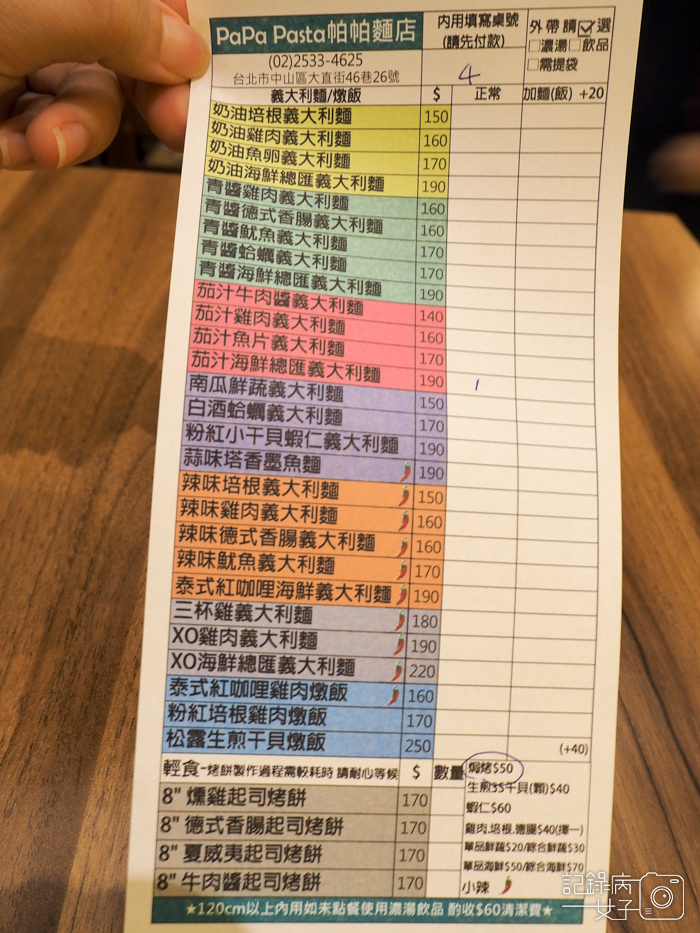 PaPa Pasta帕帕麵店
(02)2533-4625
台北市中山區大直街46巷26號
內用填寫桌號
(請先付款)
4
外帶請☑選
□濃湯□飲品
□需提袋
義大利麵/燉飯 $ 正常 加麵(飯) +20
奶油培根義大利麵 150
奶油雞肉義大利麵 160
奶油魚卵義大利麵 170
奶油海鮮總匯義大利麵 190
青醬雞肉義大利麵 160
青醬德式香腸義大利麵 160
青醬魷魚義大利麵 170
青醬蛤蠣義大利麵 170
青醬海鮮總匯義大利麵 190
茄汁牛肉醬義大利麵 140
茄汁雞肉義大利麵 160
茄汁魚片義大利麵 170
茄汁海鮮總匯義大利麵 190 1
南瓜鮮蔬義大利麵 150
白酒蛤蠣義大利麵 170
粉紅小干貝蝦仁義大利麵 190
蒜味塔香墨魚麵 190
辣味培根義大利麵 150
辣味雞肉義大利麵 160
辣味德式香腸義大利麵 160
辣味魷魚義大利麵 170
泰式紅咖哩海鮮義大利麵 190
三杯雞義大利麵 180
XO雞肉義大利麵 190
XO海鮮總匯義大利麵 220
泰式紅咖哩雞肉燉飯 160
粉紅培根雞肉燉飯 170
松露生煎干貝燉飯 250 (+40)
輕食-烤餅製作過程需較耗時 請耐心等候 $ 數量
8" 燻雞起司烤餅 170
8" 德式香腸起司烤餅 170
8" 夏威夷起司烤餅 170
8" 牛肉醬起司烤餅 170
焗烤$50
生煎3S干貝(顆)$40
蝦仁$60
雞肉.培根.德腸$40(擇一)
單品鮮蔬$20/綜合鮮蔬$30
單品海鮮$50/綜合海鮮$70
小辣
★120cm以上內用如未點餐使用濃湯飲品 酌收$60清潔費★
記錄病
女子